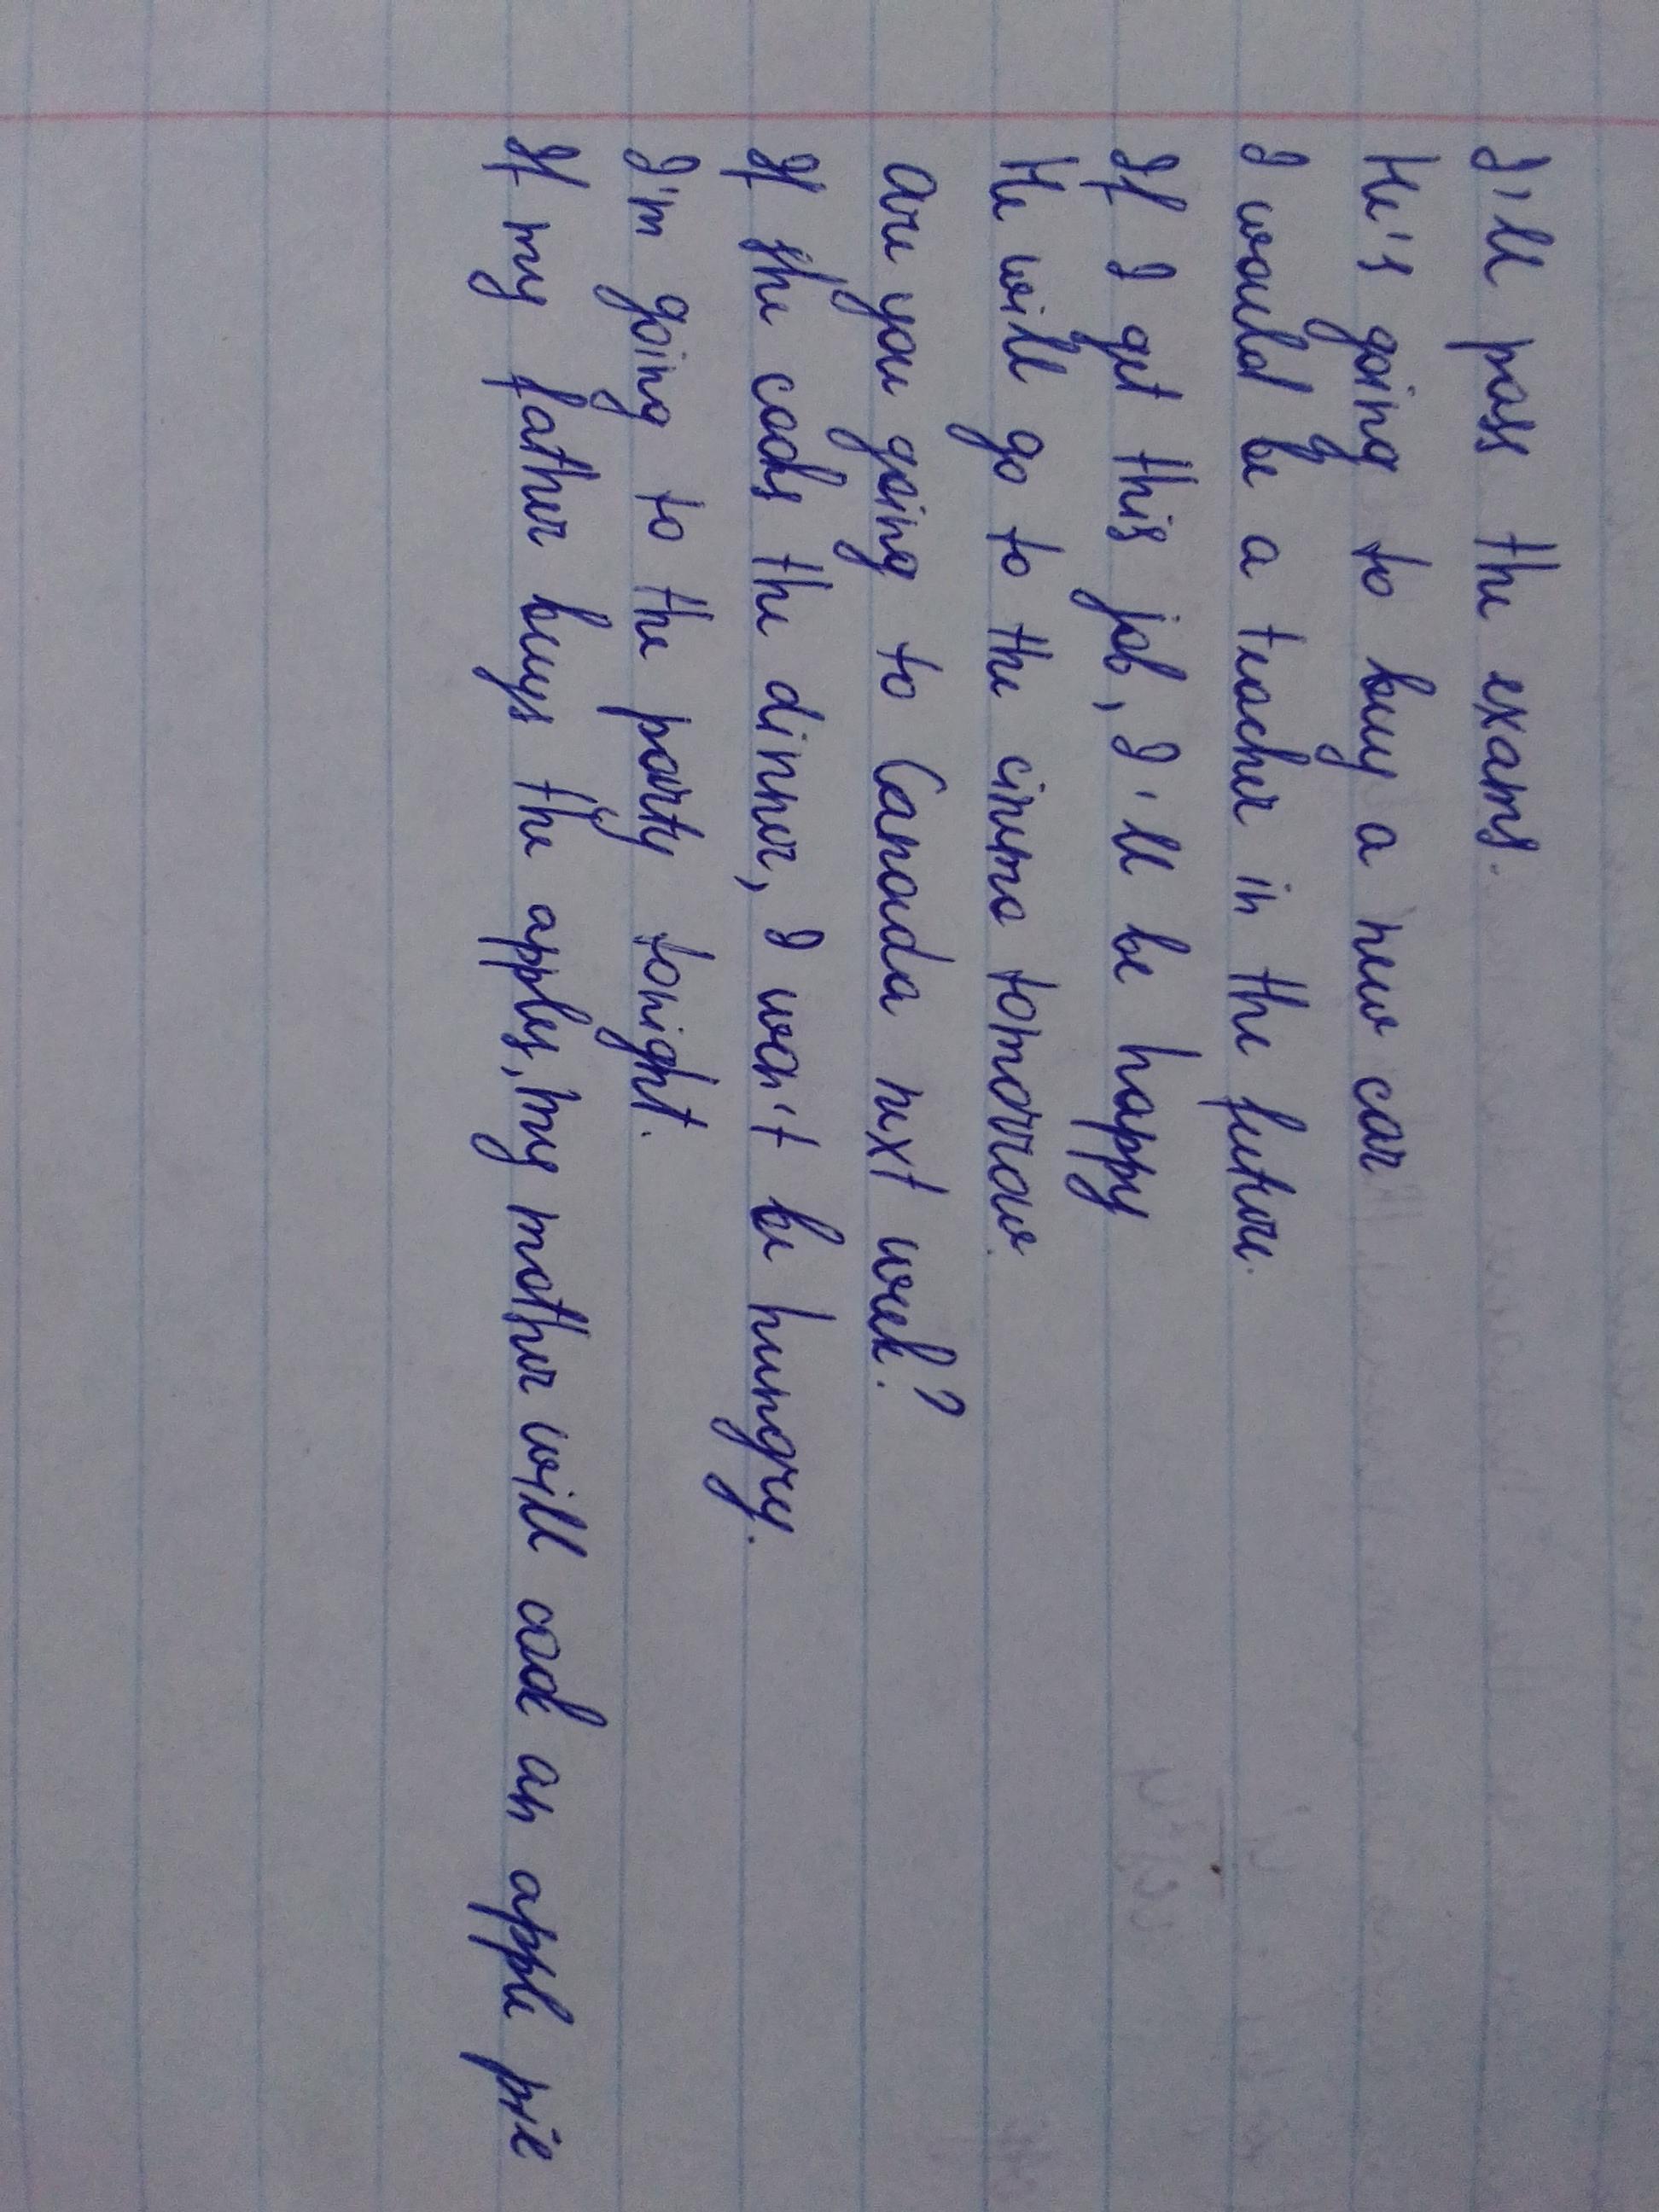 I'll pass the exams.
He's going to buy a new car
I would be a teacher in the future.
If I get this job, I'll be happy
He will go to the cinema tomorrow.
Are you going to Canada next week?
If the cooks the dinner, I won't be hungry.
I'm going to the party tonight.
If my father buys the apples, my mother will cook an apple pie